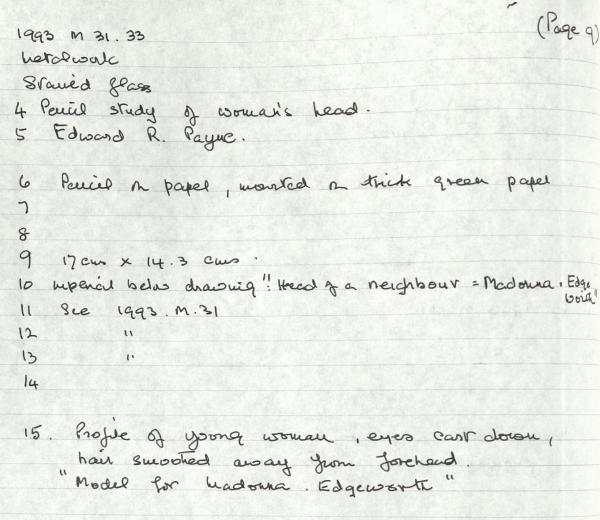 (Page 9)
1993 M 31.33
Metalwork
Stained glass
4 Pencil study of woman's head.
5 Edward R. Payne.
6 Pencil on paper, mounted on thick green paper
7
8
9 17 cms x 14.3 cms.
10 below drawing ": Head of a neighbour = Madonna. Edgeworth"
11 See 1993.M.31
12 "
13 "
14
15. Profile of young woman, eyes cast down,
hair smoothed away from forehead.
"Model for Madonna. Edgeworth"